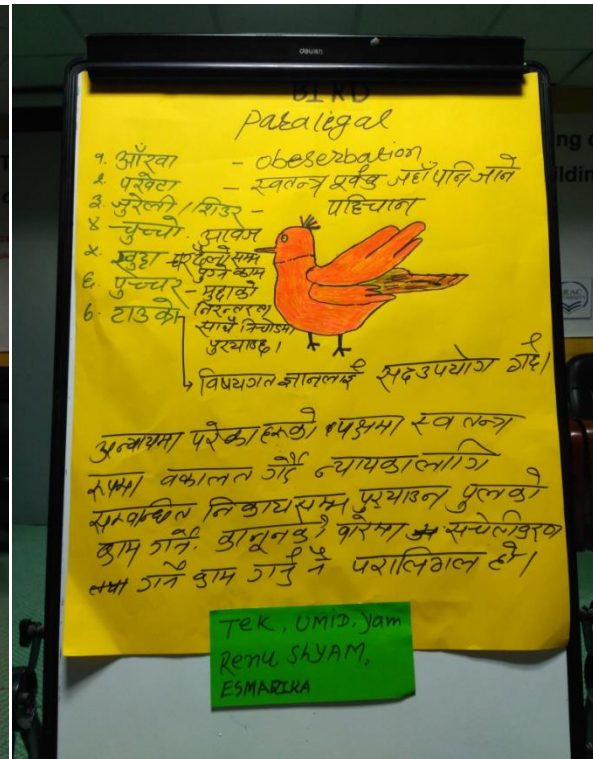 deli
BIRD
Paralegal
१. आँखा - obeserbation
२ पखेटा - स्वतन्त्र पूर्वक जहाँ पनि जाने
३ जुरेली / शिउर - पहिचान
४ चुच्चो - आवाज
५ खुट्टा - घरदैलो सम्म पुग्ने काम
६ पुच्छर - मुद्दाको निरन्तरता साथै निचोडमा पुर्‍याउछ।
७. टाउको
→ विषयगत ज्ञानलाई सदउपयोग गर्दै।
अन्यायमा परेकाहरूको पक्षमा स्वतन्त्र
रूपमा वकालत गर्दै न्यायका लागि
सम्वन्धित निकायसम्म पुर्‍याउन पुलको
काम गर्ने. कानूनको बारेमा सचेतीकरण
तथा गर्ने काम गर्नु नै परालिगल हो।
Tek, UMID, Yam
Renu ShYAM,
ESMARIKA